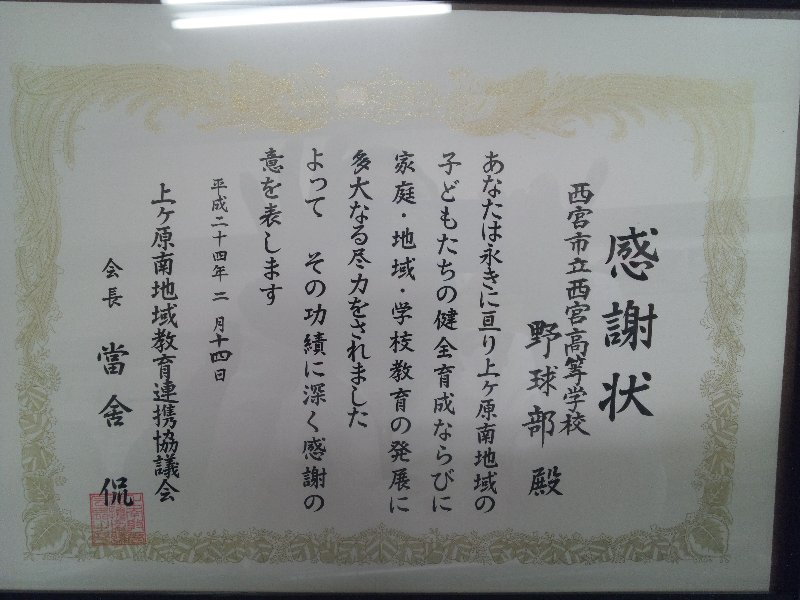 感謝状
西宮市立西宮高等学校
野球部殿
あなたは永きに亘り上ケ原南地域の
子どもたちの健全育成ならびに
家庭・地域・学校教育の発展に
多大なる尽力をされました
よって その功績に深く感謝の
意を表します
平成二十四年二月十四日
上ケ原南地域教育連携協議会
会長 當舎 侃